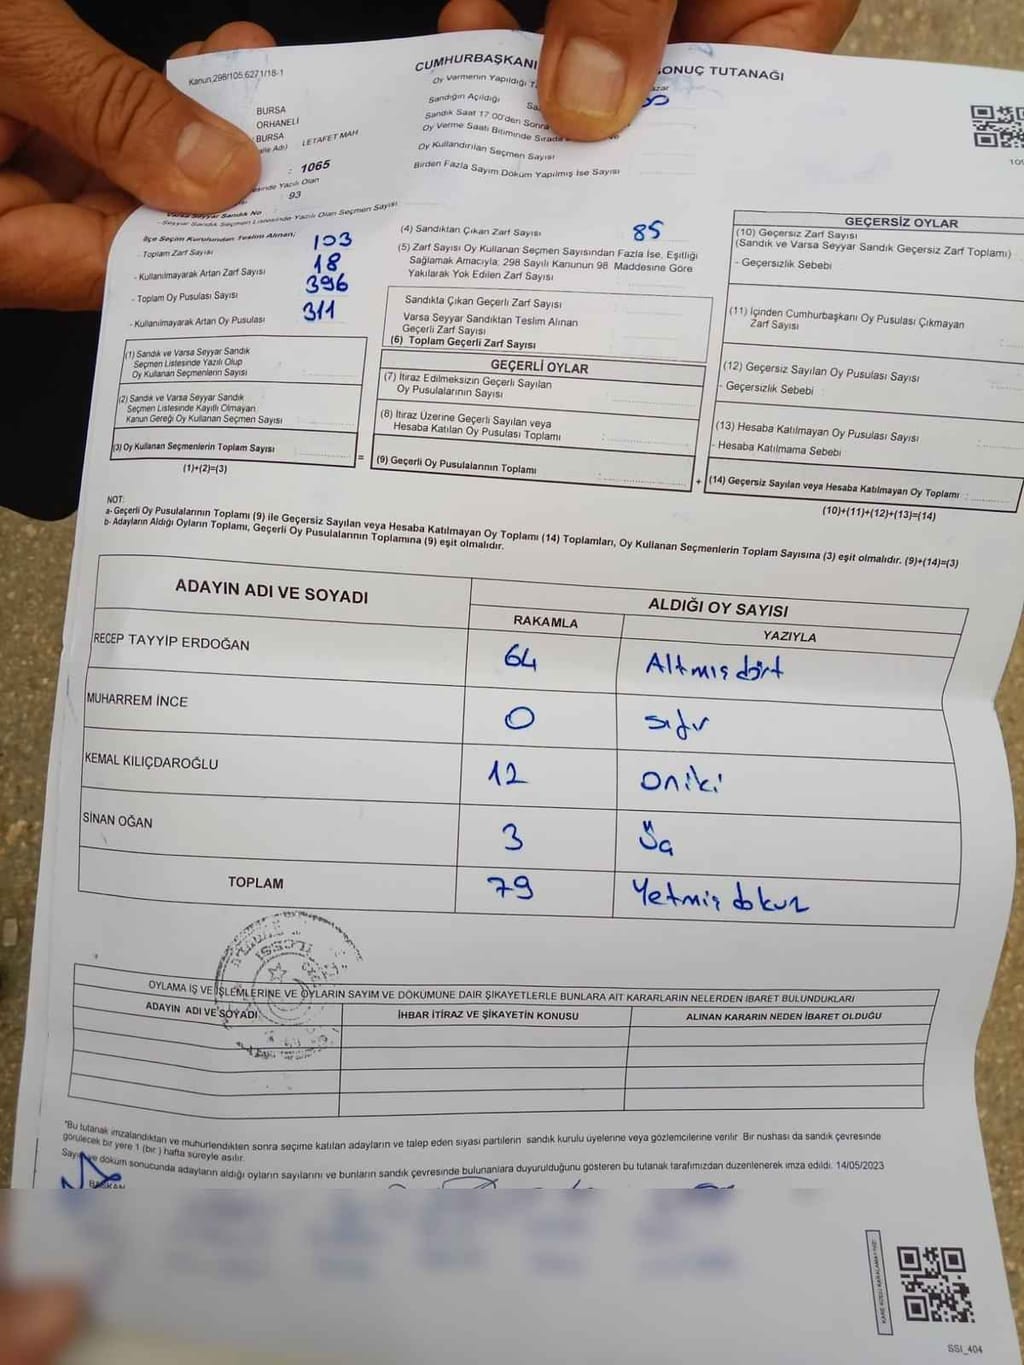 Kanun,298/105 6271/18-1
CUMHURBAŞKANI
SONUÇ TUTANAĞI
BURSA
ORHANELİ
BURSA
LETAFET MAH
: 1065
93
Oy Vermenin Yapıldığı
Sandığın Açıldığı
Sandık Saat 17.00'den Sonra
Oy Verme Saati Bitiminde Sırada
Oy Kullandırılan Seçmen Sayısı
Birden Fazla Sayım Döküm Yapılmış İse Sayısı
Varsa Seyyar Sandık No
- Seyyar Sandık Seçmen Listesinde Yazılı Olan Seçmen Sayısı
İlçe Seçim Kurulundan Teslim Alınan;
- Toplam Zarf Sayısı 103
- Kullanılmayarak Artan Zarf Sayısı 18
- Toplam Oy Pusulası Sayısı 396
- Kullanılmayarak Artan Oy Pusulası 311
(1) Sandık ve Varsa Seyyar Sandık
Seçmen Listesinde Yazılı Olup
Oy Kullanan Seçmenlerin Sayısı
(2) Sandık ve Varsa Seyyar Sandık
Seçmen Listesinde Kayıtlı Olmayan
Kanun Gereği Oy Kullanan Seçmen Sayısı
(3) Oy Kullanan Seçmenlerin Toplam Sayısı
(1)+(2)=(3)
=
(4) Sandıktan Çıkan Zarf Sayısı 85
(5) Zarf Sayısı Oy Kullanan Seçmen Sayısından Fazla İse, Eşitliği
Sağlamak Amacıyla; 298 Sayılı Kanunun 98. Maddesine Göre
Yakılarak Yok Edilen Zarf Sayısı
Sandıkta Çıkan Geçerli Zarf Sayısı
Varsa Seyyar Sandıktan Teslim Alınan
Geçerli Zarf Sayısı
(6) Toplam Geçerli Zarf Sayısı
GEÇERLİ OYLAR
(7) İtiraz Edilmeksizin Geçerli Sayılan
Oy Pusulalarının Sayısı
(8) İtiraz Üzerine Geçerli Sayılan veya
Hesaba Katılan Oy Pusulası Toplamı
(9) Geçerli Oy Pusulalarının Toplamı
+
GEÇERSİZ OYLAR
(10) Geçersiz Zarf Sayısı
(Sandık ve Varsa Seyyar Sandık Geçersiz Zarf Toplamı)
- Geçersizlik Sebebi
(11) İçinden Cumhurbaşkanı Oy Pusulası Çıkmayan
Zarf Sayısı
(12) Geçersiz Sayılan Oy Pusulası Sayısı
- Geçersizlik Sebebi
(13) Hesaba Katılmayan Oy Pusulası Sayısı
- Hesaba Katılmama Sebebi
(14) Geçersiz Sayılan veya Hesaba Katılmayan Oy Toplamı
(10)+(11)+(12)+(13)=(14)
NOT:
a- Geçerli Oy Pusulalarının Toplamı (9) ile Geçersiz Sayılan veya Hesaba Katılmayan Oy Toplamı (14) Toplamları, Oy Kullanan Seçmenlerin Toplam Sayısına (3) eşit olmalıdır. (9)+(14)=(3)
b- Adayların Aldığı Oyların Toplamı, Geçerli Oy Pusulalarının Toplamına (9) eşit olmalıdır.
ADAYIN ADI VE SOYADI
ALDIĞI OY SAYISI
RAKAMLA YAZIYLA
RECEP TAYYİP ERDOĞAN 64 Altmış dört
MUHARREM İNCE 0 sıfır
KEMAL KILIÇDAROĞLU 12 oniki
SİNAN OĞAN 3 Üç
TOPLAM 79 Yetmiş dokuz
OYLAMA İŞ VE İŞLEMLERİNE VE OYLARIN SAYIM VE DÖKÜMÜNE DAİR ŞİKAYETLERLE BUNLARA AİT KARARLARIN NELERDEN İBARET BULUNDUKLARI
ADAYIN ADI VE SOYADI İHBAR İTİRAZ VE ŞİKAYETİN KONUSU ALINAN KARARIN NEDEN İBARET OLDUĞU
"Bu tutanak imzalandıktan ve mühürlendikten sonra seçime katılan adayların ve talep eden siyasi partilerin sandık kurulu üyelerine veya gözlemcilerine verilir. Bir nushası da sandık çevresinde
görülecek bir yere 1 (bir) hafta süreyle asılır.
ve döküm sonucunda adayların aldığı oyların sayılarını ve bunların sandık çevresinde bulunanlara duyurulduğunu gösteren bu tutanak tarafımızdan düzenlenerek imza edildi. 14/05/2023
BAŞKAN
SSI_404